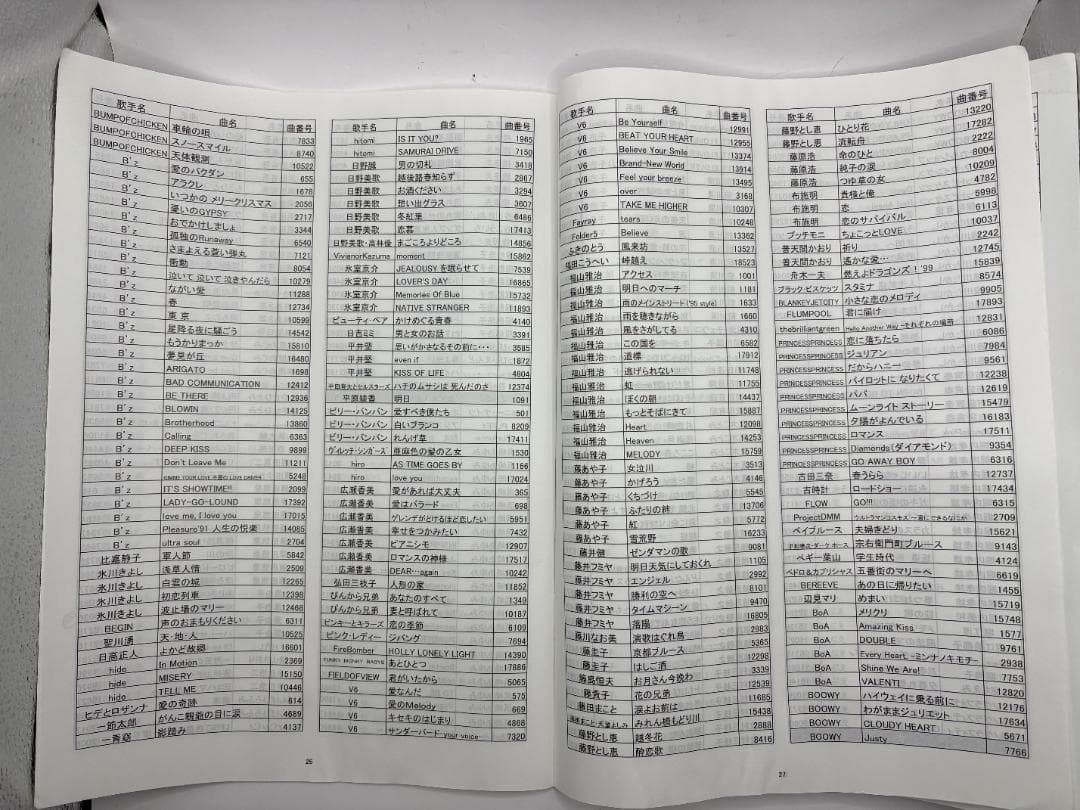 歌手名 曲名 曲番号
BUMPOFCHICKEN 車輪の唄 7833
BUMPOFCHICKEN スノースマイル 8740
BUMPOFCHICKEN 天体観測 10522
B'z 愛のバクダン 655
B'z アラクレ 1678
B'z いつかの メリークリスマス 2056
B'z 憂いのGYPSY 2717
B'z おでかけしましょ 3344
B'z 孤独のRunaway 6540
B'z さまよえる蒼い弾丸 7121
B'z 衝動 8054
B'z 泣いて 泣いて 泣きやんだら 10279
B'z ながい愛 11288
B'z 春 12734
B'z 東 京 10599
B'z 星降る夜に騒ごう 14542
B'z もうかりまっか 15810
B'z 夢見が丘 16480
B'z ARIGATO 1698
B'z BAD COMMUNICATION 12412
B'z BE THERE 12936
B'z BLOWIN 14125
B'z Brotherhood 13860
B'z Calling 6363
B'z DEEP KISS 9899
B'z Don't Leave Me 11211
B'z 5248
B'z IT'S SHOWTIME!! 2099
B'z LADY-GO-LOUND 17392
B'z love me, I love you 17015
B'z Pleasure'91 人生の悦楽 14085
B'z ultra soul 2704
比嘉静子 軍人節 5842
氷川きよし 浅草人情 2509
氷川きよし 白雲の城 12265
氷川きよし 初恋列車 12398
氷川きよし 波止場のマリー 12468
BEGIN 声のおまもりください 6311
聖川湧 天・地・人 10525
日高正人 よかど故郷 16601
hide In Motion 2369
hide MISERY 15150
hide TELL ME 10446
ヒデとロザンナ 愛の奇跡 614
一節太郎 がんこ親爺の目に涙 4689
一青窈 影踏み 4137
歌手名 曲名 曲番号
hitomi IS IT YOU? 1965
hitomi SAMURAI DRIVE 7150
日野誠 男の切札 3418
日野美歌 越後路春知らず 2967
日野美歌 お酒ください 3294
日野美歌 想い出グラス 3607
日野美歌 冬紅葉 6486
日野美歌 恋暮 17413
日野美歌・高林優 まごころよりどころ 14856
VivienorKazuma moment 15862
氷室京介 JEALOUSYを眠らせて 7539
氷室京介 LOVER'S DAY 16865
氷室京介 Memories Of Blue 15732
氷室京介 NATIVE STRANGER 11893
ビューティ・ペア かけめぐる青春 4140
日吉ミミ 男と女のお話 3391
平井堅 思いがかさなるその前に・・・ 3585
平井堅 even if 1872
平井堅 KISS OF LIFE 4804
平田隆夫とセルスターズ ハチのムサシは 死んだのさ 12374
平原綾香 明日 1091
ビリー・バンバン 愛すべき僕たち 501
ビリー・バンバン 白いブランコ 8209
ビリー・バンバン れんげ草 17411
ヴィレッヂ・シンガーズ 亜麻色の髪の乙女 1530
hiro AS TIME GOES BY 1166
hiro love you 17024
広瀬香美 愛があれば大丈夫 365
広瀬香美 愛はバラード 698
広瀬香美 ゲレンデがとけるほど恋したい 5951
広瀬香美 幸せをつかみたい 7432
広瀬香美 ピアニシモ 12907
広瀬香美 ロマンスの神様 17517
広瀬香美 DEAR…again 10242
弘田三枝子 人形の家 11852
ぴんから兄弟 あなたのすべて 1349
ぴんから兄弟 妻と呼ばれて 10187
ピンキーとキラーズ 恋の季節 6109
ピンク・レディー ジパング 7694
FireBomber HOLLY LONELY LIGHT 14390
FUNKY MONKEY BABYS あとひとつ 17886
FIELDOFVIEW 君がいたから 5065
V6 愛なんだ 575
V6 愛のMelody 669
V6 キセキのはじまり 4868
V6 サンダーバード your voice 7320
25
歌手名 曲名 曲番号
V6 Be Yourself 12991
V6 BEAT YOUR HEART 12955
V6 Believe Your Smile 13374
V6 Brand-New World 13914
V6 Feel your breeze 13495
V6 over 3168
V6 TAKE ME HIGHER 10307
Fayray tears 10248
Folder5 Believe 13362
ふきのとう 風来坊 13527
福田こうへい 峠越え 18523
福山雅治 アクセス 1001
福山雅治 明日へのマーチ 1181
福山雅治 雨のメインストリート('95 style) 1633
福山雅治 雨を聴きながら 1660
福山雅治 風をさがしてる 4310
福山雅治 この国を 6582
福山雅治 道標 17912
福山雅治 逃げられない 11748
福山雅治 虹 11755
福山雅治 ぼくの朝 14437
福山雅治 もっとそばにきて 15887
福山雅治 Heart 12098
福山雅治 Heaven 14253
福山雅治 MELODY 15759
藤あや子 女泣川 3513
藤あや子 かげろう 4146
藤あや子 くちづけ 5545
藤あや子 ふたりの絆 13706
藤あや子 紅 5772
藤あや子 雪荒野 16233
藤井健 ゼンダマンの歌 9081
藤井フミヤ 明日天気にしておくれ 1105
藤井フミヤ エンジェル 2992
藤井フミヤ 勝利の空へ 8101
藤井フミヤ タイムマシーン 9470
藤井フミヤ 落陽 16805
藤川なお美 演歌はぐれ鳥 2983
藤圭子 京都ブルース 5365
藤圭子 はしご酒 12298
藤島恒夫 お月さん今晩わ 3339
藤貴子 花の兄弟 12539
藤田まこと 涙よお前は 11685
みれん橋もどり川 15438
藤野とし恵 越冬花 2888
藤野とし恵 酔恋歌 8416
歌手名 曲名 曲番号
藤野とし恵 ひとり花 13220
藤野とし恵 浪転舟 17282
藤原浩 命のひと 2222
藤原浩 純子の涙 8004
藤原浩 つゆ草の女 10209
布施明 貴様と俺 4782
布施明 恋 5998
布施明 恋のサバイバル 6113
プッチモニ ちょこっとLOVE 10037
普天間かおり 祈り 2242
普天間かおり 遥かな愛… 12745
舟木一夫 燃えよドラゴンズ!'99 15839
ブラック・ビスケッツ スタミナ 8574
BLANKEYJETCITY 小さな恋のメロディ 9905
FLUMPOOL 君に届け 17893
thebrilliantgreen Hello Another Way -それぞれの場所- 12831
PRINCESSPRINCESS 恋に落ちたら 6086
PRINCESSPRINCESS ジュリアン 7984
PRINCESSPRINCESS だからハニー 9561
PRINCESSPRINCESS パイロットに なりたくて 12238
PRINCESSPRINCESS パパ 12619
PRINCESSPRINCESS ムーンライト ストーリー 15479
PRINCESSPRINCESS 夕陽がよんでいる 16183
PRINCESSPRINCESS ロマンス 17511
PRINCESSPRINCESS Diamonds(ダイアモンド) 9354
PRINCESSPRINCESS GO AWAY BOY 6316
古田三奈 春うらら 12737
古時計 ロードショー 17434
FLOW GO!!! 6315
ProjectDMM ウルトラマンコスモス～君にできるなにか 2709
ベイブルース 夫婦きどり 15621
平和勝次とダーク ホース 宗右衛門町ブルース 9143
ペギー葉山 学生時代 4124
ペドロ＆カプリシャス 五番街のマリーへ 6619
BEREEVE あの日に帰りたい 1455
辺見マリ めまい 15719
BoA メリクリ 15748
BoA Amazing Kiss 1577
BoA DOUBLE 9761
BoA Every Heart -ミンナノキモチ- 2938
BoA Shine We Are! 7753
BoA VALENTI 12820
BOOWY ハイウェイに乗る前に 12176
BOOWY わがままジュリエット 17634
BOOWY CLOUDY HEART 5671
BOOWY Justy 7766
27